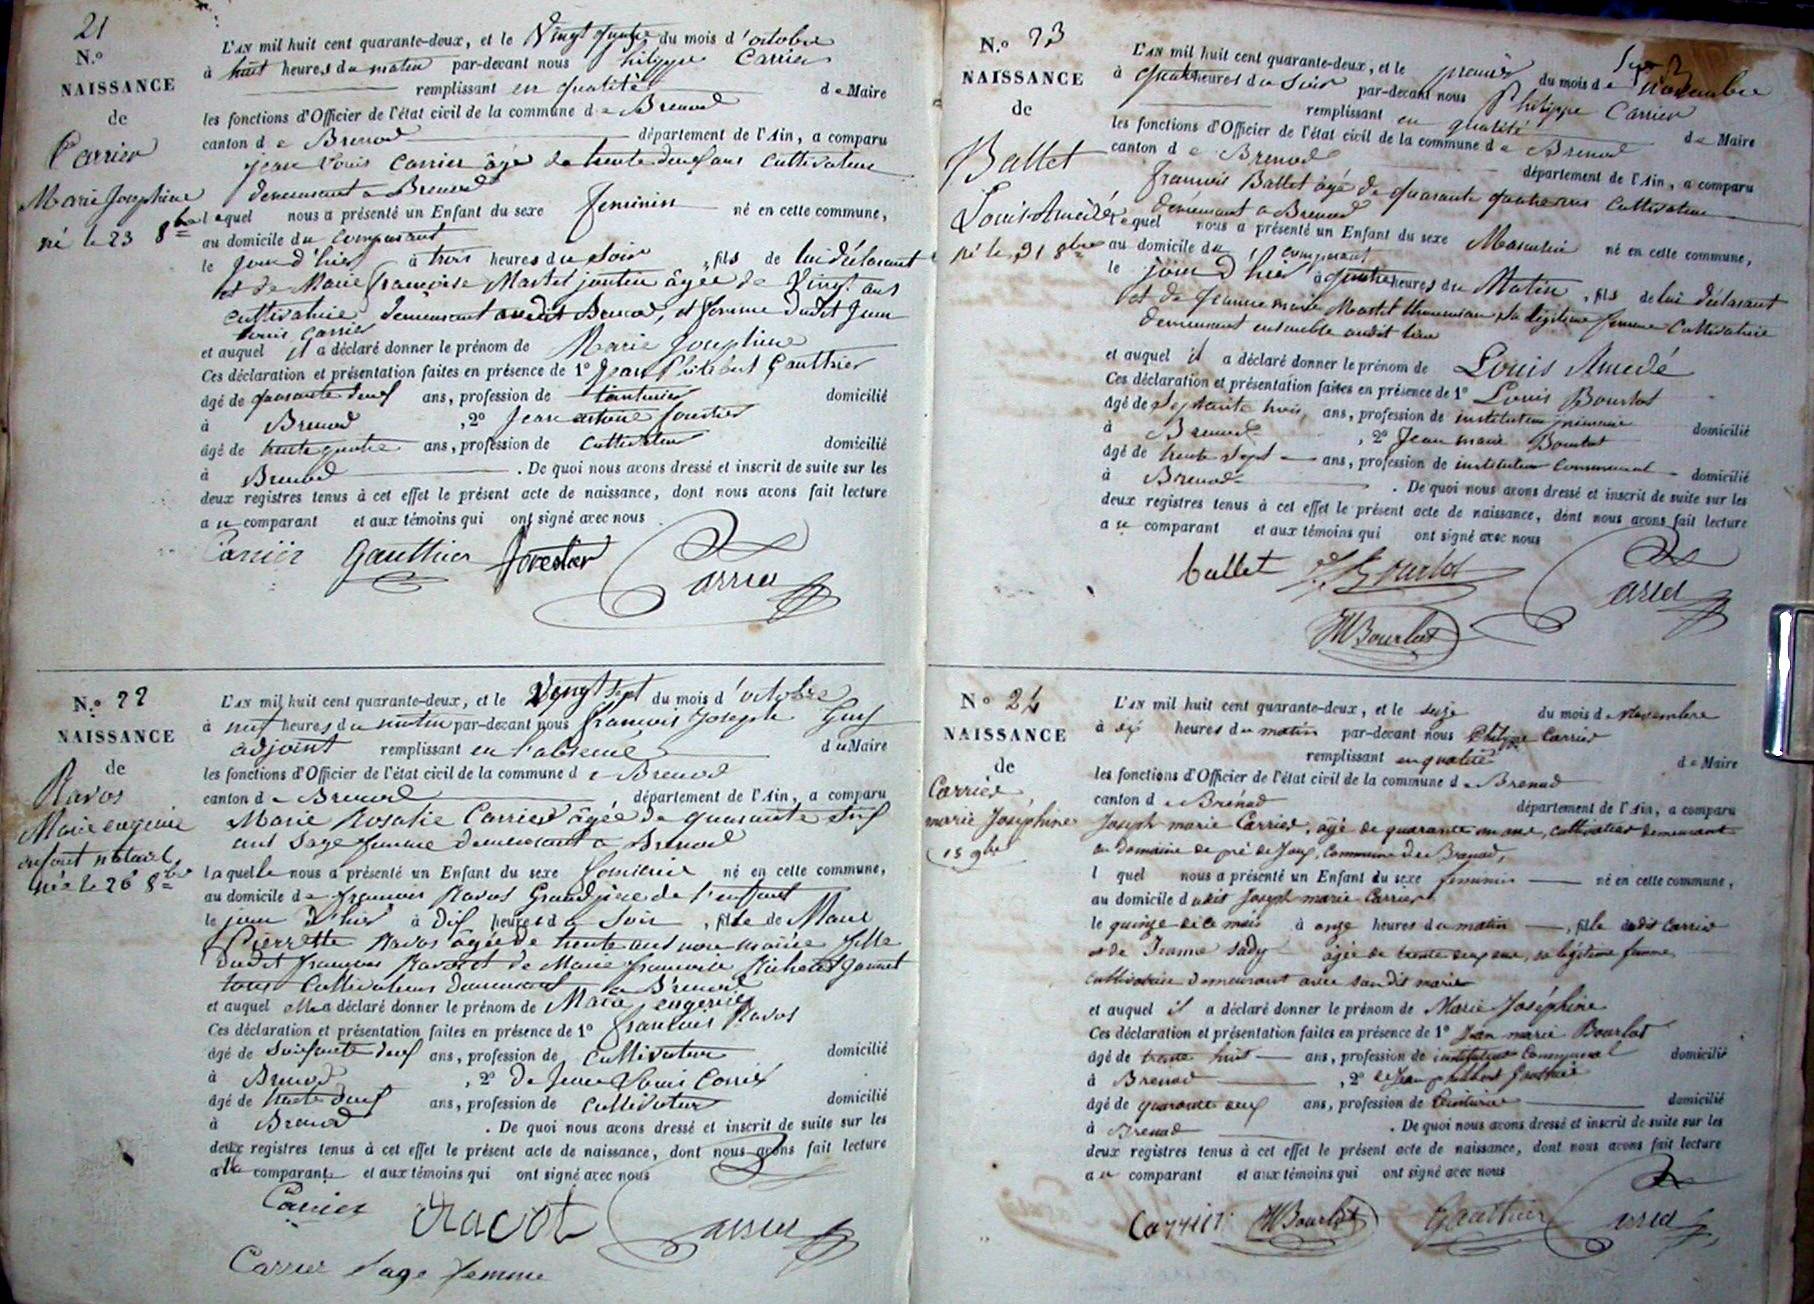 21
N.º
NAISSANCE
de
Carrier
Marie Josephine
né le 23 8bre
L'AN mil huit cent quarante-deux, et le Vingt quatre du mois d'octobre
à huit heures du matin par-devant nous Philippe Carrier
remplissant en qualité de Maire
les fonctions d'Officier de l'état civil de la commune de Brenod
canton de Brenod département de l'Ain, a comparu
jean Louis Carrier âgé de trente deux ans Cultivateur
demeurant a Brenod
lequel nous a présenté un Enfant du sexe feminin né en cette commune,
au domicile du comparant
le jour d'hier à trois heures du soir, fils de lui déclarant
et de Marie Françoise Martel jantin âgée de Vingt ans
cultivatrice demeurant audit Brenod, et femme dudit Jean
Louis Carrier
et auquel il a déclaré donner le prénom de Marie Josephine
Ces déclaration et présentation faites en présence de 1º Jean Philibert Gauthier
âgé de quarante deux ans, profession de domicilié
à Brenod, 2º Jean antoine forestier
âgé de trente quatre ans, profession de Cultivateur domicilié
à Brenod. De quoi nous avons dressé et inscrit de suite sur les
deux registres tenus à cet effet le présent acte de naissance, dont nous avons fait lecture
au comparant et aux témoins qui ont signé avec nous
Carrier Gauthier forestier Carrier
N.º 22
NAISSANCE
de
Ravos
Marie eugenie
enfant naturel,
née le 26 8bre
L'AN mil huit cent quarante-deux, et le Vingt sept du mois d'octobre
à neuf heures du matin par-devant nous francois Joseph Guy
adjoint remplissant en l'absence du Maire
les fonctions d'Officier de l'état civil de la commune de Brenod
canton de Brenod département de l'Ain, a comparu
Marie Rosalie Carrier âgée de quarante neuf
ans Sage femme demeurant a Brenod
laquelle nous a présenté un Enfant du sexe feminin né en cette commune,
au domicile de francois Ravos Grand père de l'enfant
le jour d'hier à dix heures du Soir, fille de Marie
Pierrette Ravos âgée de trente ans non mariée fille
dudit francois Ravos et de Marie francoise
tous Cultivateurs demeurant a Brenod
et auquel elle a déclaré donner le prénom de Marie eugenie
Ces déclaration et présentation faites en présence de 1º francois Ravos
âgé de Soixante deux ans, profession de Cultivateur domicilié
à Brenod, 2º de Jean Louis Carrier
âgé de trente deux ans, profession de cultivateur domicilié
à Brenod. De quoi nous avons dressé et inscrit de suite sur les
deux registres tenus à cet effet le présent acte de naissance, dont nous avons fait lecture
a la comparante et aux témoins qui ont signé avec nous
Carrier Carrier
Carrier Sage femme
N.º 23
NAISSANCE
de
Ballet
Louis Amédé
né le 31 8bre
L'AN mil huit cent quarante-deux, et le premier du mois de novembre
à quatre heures du soir par-devant nous Philippe Carrier
remplissant en qualité de Maire
les fonctions d'Officier de l'état civil de la commune de Brenod
canton de Brenod département de l'Ain, a comparu
francois Ballet âgé de quarante quatre ans Cultivateur
demeurant a Brenod
lequel nous a présenté un Enfant du sexe Masculin né en cette commune,
au domicile du comparant
le jour d'hier à quatre heures du Matin, fils de lui déclarant
et de Jeanne marie Martel sa légitime femme Cultivatrice
demeurant ensemble audit lieu
et auquel il a déclaré donner le prénom de Louis Amedé
Ces déclaration et présentation faites en présence de 1º Louis Bourlot
âgé de septante trois ans, profession de instituteur primaire domicilié
à Brenod, 2º Jean marie Bourlot
âgé de trente sept ans, profession de instituteur Communal domicilié
à Brenod. De quoi nous avons dressé et inscrit de suite sur les
deux registres tenus à cet effet le présent acte de naissance, dont nous avons fait lecture
au comparant et aux témoins qui ont signé avec nous
ballet Bourlot Carrier
JM Bourlot
Nº 24
NAISSANCE
de
Carrier
marie Joséphine
15 9bre
L'AN mil huit cent quarante-deux, et le seize du mois de Novembre
à dix heures du matin par-devant nous Philippe Carrier
remplissant en qualité de Maire
les fonctions d'Officier de l'état civil de la commune de Brenod
canton de Brénod département de l'Ain, a comparu
Joseph marie Carrier, âgé de quarante un ans, cultivateur demeurant
au domaine de pré de Joux, Commune de Brenod,
l quel nous a présenté un Enfant du sexe feminin né en cette commune,
au domicile dudit Joseph marie Carrier
le quinze de ce mois à onze heures du matin, fille dudit Carrier
et de Jeanne Sady âgée de trente deux ans, sa légitime femme
cultivatrice demeurant avec sondit marie
et auquel il a déclaré donner le prénom de Marie Joséphine
Ces déclaration et présentation faites en présence de 1º Jean marie Bourlot
âgé de trente huit ans, profession de instituteur Communal domicilié
à Brenod, 2º de Jean philibert Gauthier
âgé de quarante deux ans, profession de domicilié
à Brenod. De quoi nous avons dressé et inscrit de suite sur les
deux registres tenus à cet effet le présent acte de naissance, dont nous avons fait lecture
au comparant et aux témoins qui ont signé avec nous
Carrier JM Bourlot Gauthier Carrier